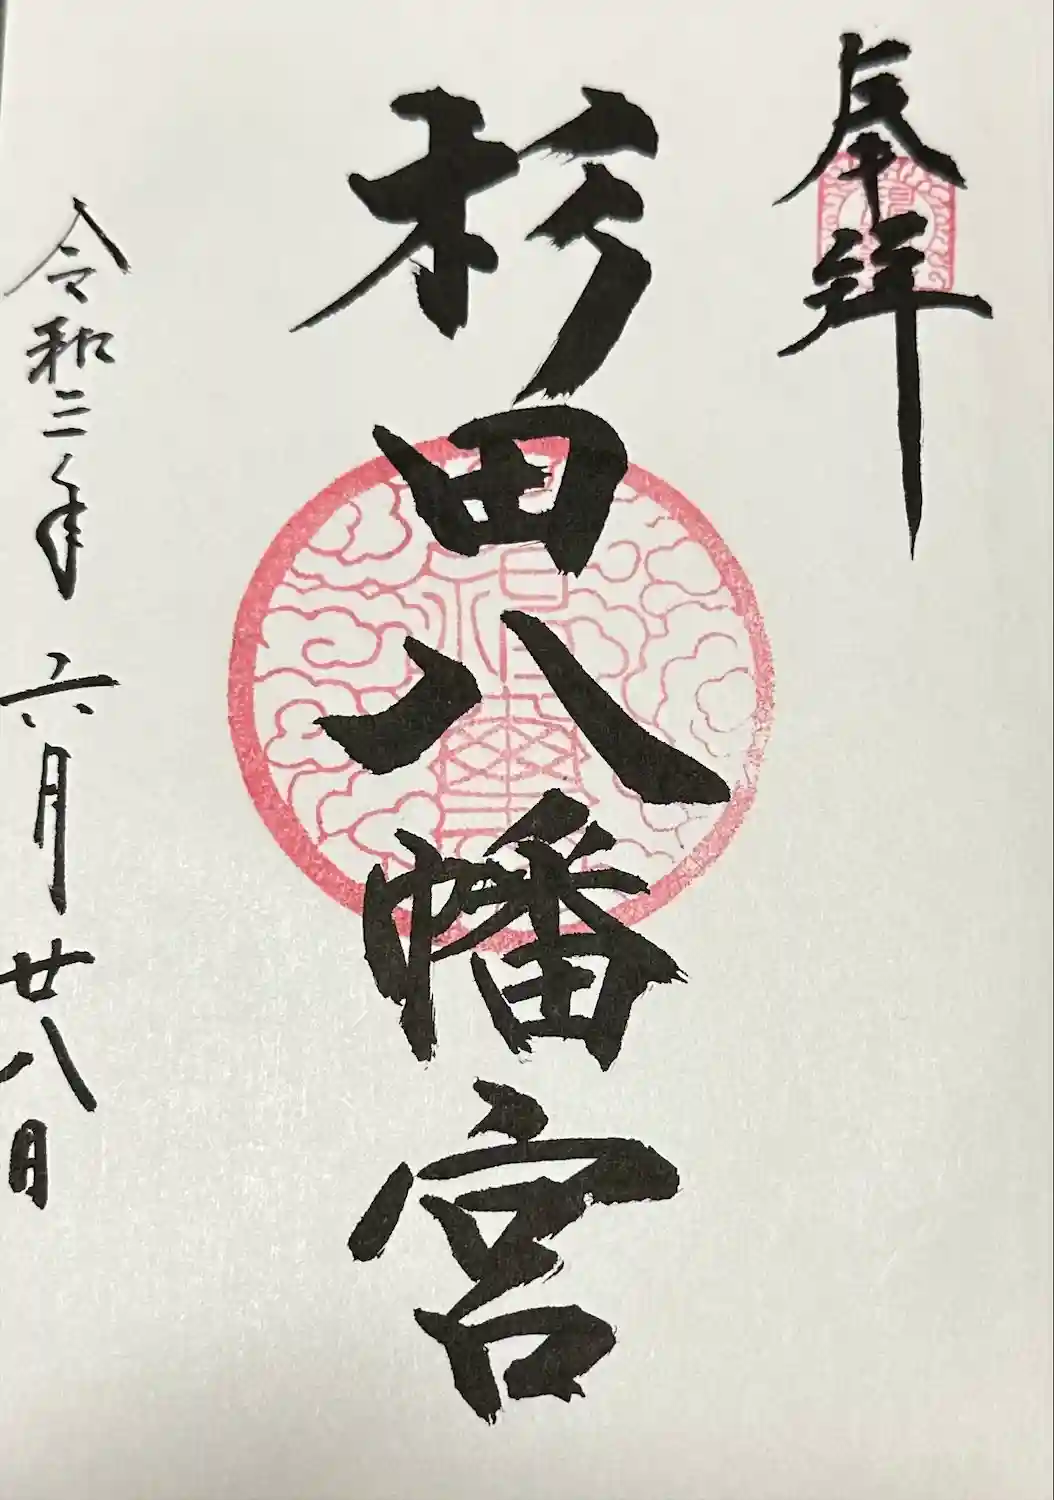 奉拝
杉田八幡宮
令和三年 六月廿八日